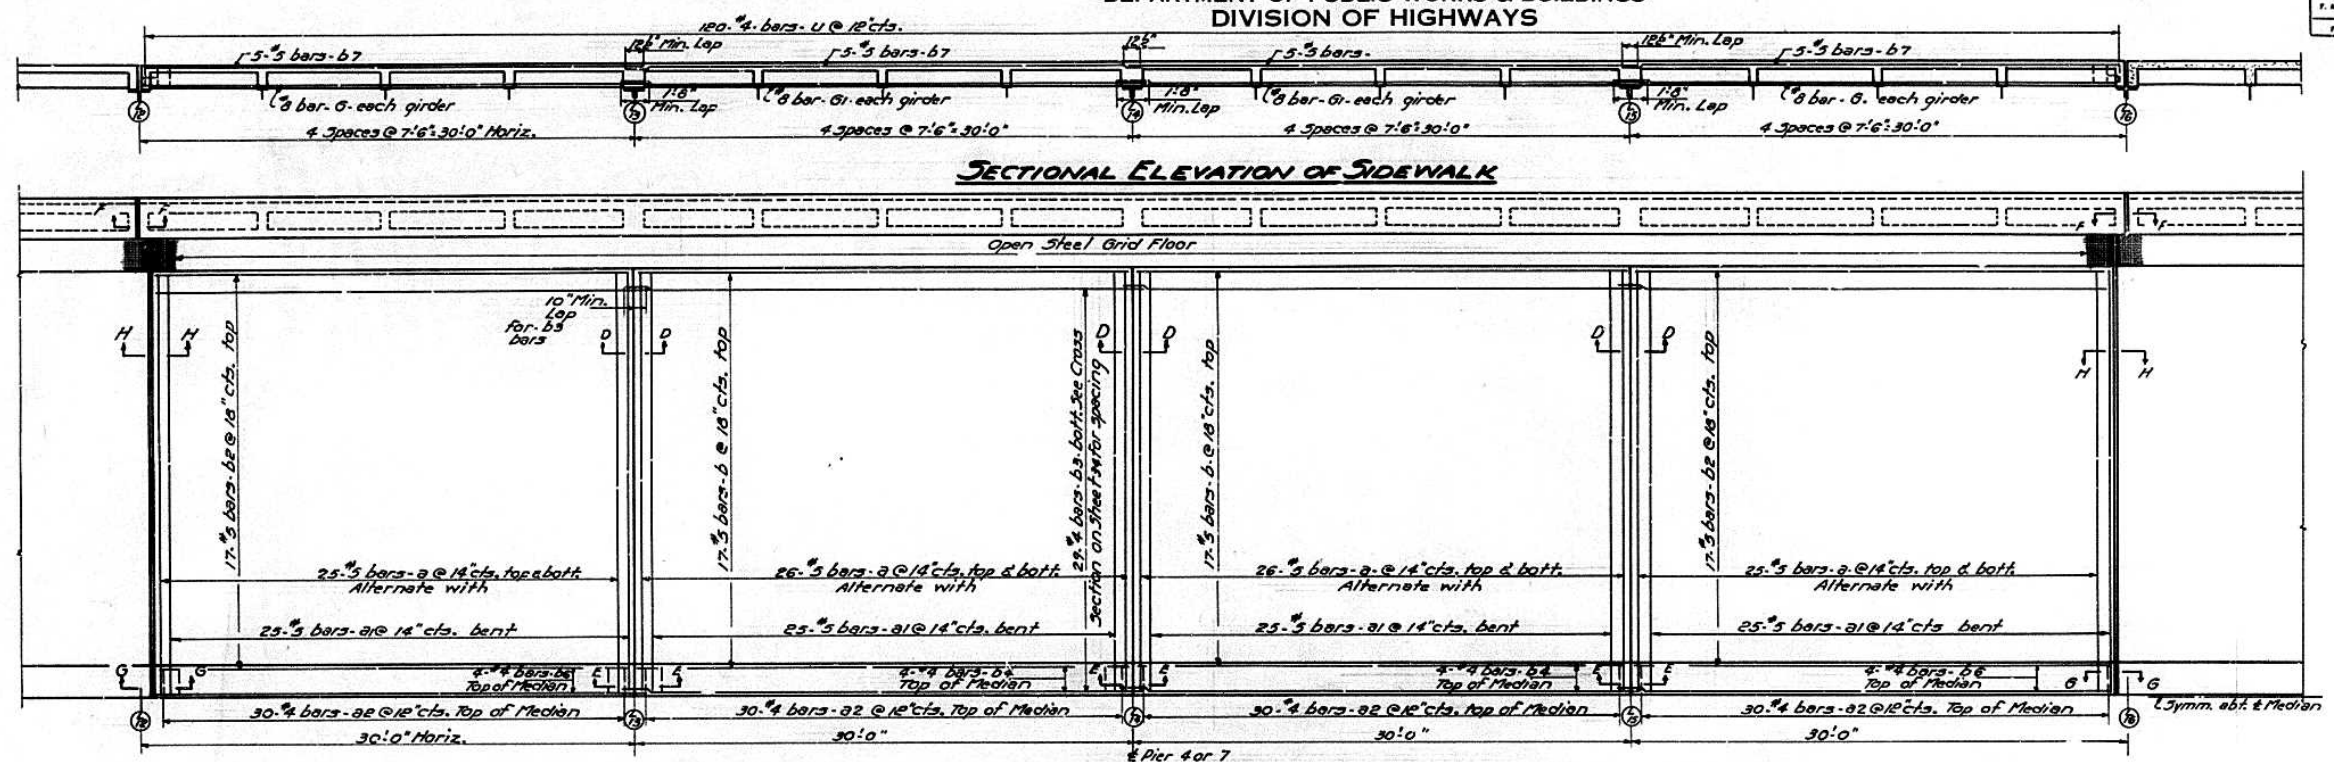 DEPARTMENT OF PUBLIC WORKS & BUILDINGS
DIVISION OF HIGHWAYS
120-#4-bars-U @ 12"cts.
5-#5 bars-b7
12½" Min. Lap
5-#5 bars-b7
12½"
5-#5 bars-
12½" Min. Lap
5-#5 bars-b7
#8 bar-G-each girder
1'-8"
Min. Lap
#8 bar-G1-each girder
1'-8"
Min. Lap
#8 bar-G1-each girder
1'-8"
Min. Lap
#8 bar-G. each girder
L12
L13
L14
L15
L16
4 Spaces @ 7'-6"=30'-0" Horiz.
4 Spaces @ 7'-6"=30'-0"
4 Spaces @ 7'-6"=30'-0"
4 Spaces @ 7'-6"=30'-0"
SECTIONAL ELEVATION OF SIDEWALK
F F
F F
Open Steel Grid Floor
10" Min.
Lap
for-b3
bars
H H
D D
D D
D D
H H
17-#5 bars-b2 @ 18"cts. top
17-#5 bars-b @ 18"cts. top
29-#4 bars-b3-bott. See Cross
Section on Sheet for spacing
17-#5 bars-b.@ 18"cts. top
17-#5 bars-b2 @ 18"cts. top
25-#5 bars-a @ 14"cts. top & bott.
Alternate with
26-#5 bars-a @ 14"cts. top & bott.
Alternate with
26-#5 bars-a. @ 14"cts. top & bott.
Alternate with
25-#5 bars-a. @ 14"cts. top & bott.
Alternate with
25-#5 bars-a1 @ 14"cts. bent
25-#5 bars-a1 @ 14"cts. bent
25-#5 bars-a1 @ 14"cts. bent
25-#5 bars-a1 @ 14"cts bent
G G
4-#4 bars-b6
Top of Median
E E
4-#4 bars-b4
Top of Median
E E
4-#4 bars-b4
Top of Median
E E
4-#4 bars-b6
Top of Median
G G
30-#4 bars-a2 @ 12"cts. Top of Median
30-#4 bars-a2 @ 12"cts. Top of Median
30-#4 bars-a2 @ 12"cts. top of Median
30-#4 bars-a2 @ 12"cts. Top of Median
Symm. abt. ℄ Median
30'-0" Horiz.
30'-0"
30'-0"
30'-0"
℄ Pier 4 or 7